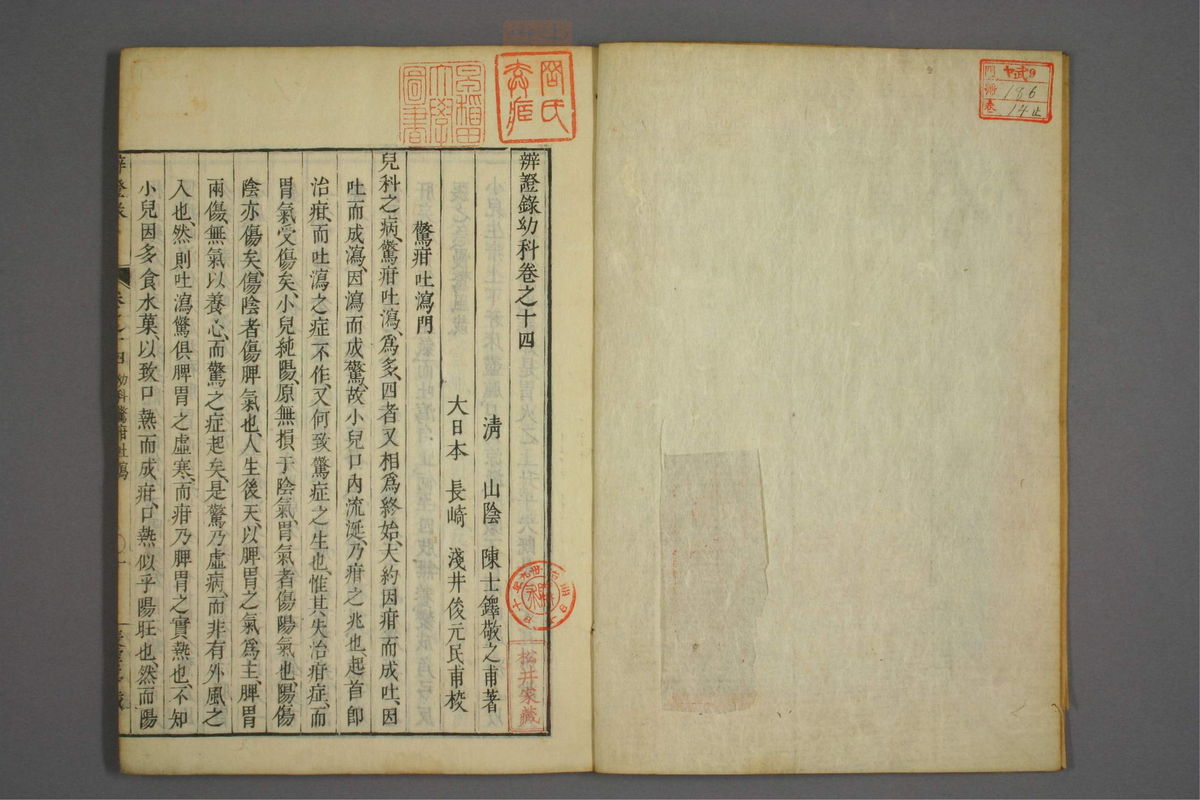 辨證錄幼科卷之十四
清 山陰 陳士鐸敬之甫著
大日本 長崎 淺井俊元民甫校
驚疳吐瀉門
兒科之病、驚疳吐瀉、爲多、四者又相爲終始、大約因疳而成吐、因
吐而成瀉、因瀉而成驚、故小兒口內流涎、乃疳之兆也、起首卽
治疳、而吐瀉之症不作、又何致驚症之生也、惟其失治疳症、而
胃氣受傷矣、小兒純陽、原無損于陰氣、胃氣者傷陽氣也、陽傷
陰亦傷矣、傷陰者傷脾氣也、人生後天、以脾胃之氣爲主、脾胃
兩傷、無氣以養心、而驚之症起矣、是驚乃虛病、而非有外風之
入也、然則吐瀉驚俱脾胃之虛寒、而疳乃脾胃之實熱也、不知
小兒因多食水菓、以致口熱而成疳、口熱似乎陽旺也、然而陽
幼科驚疳吐瀉
早稻田大學圖書
松井家藏
門 號 卷
186
14止